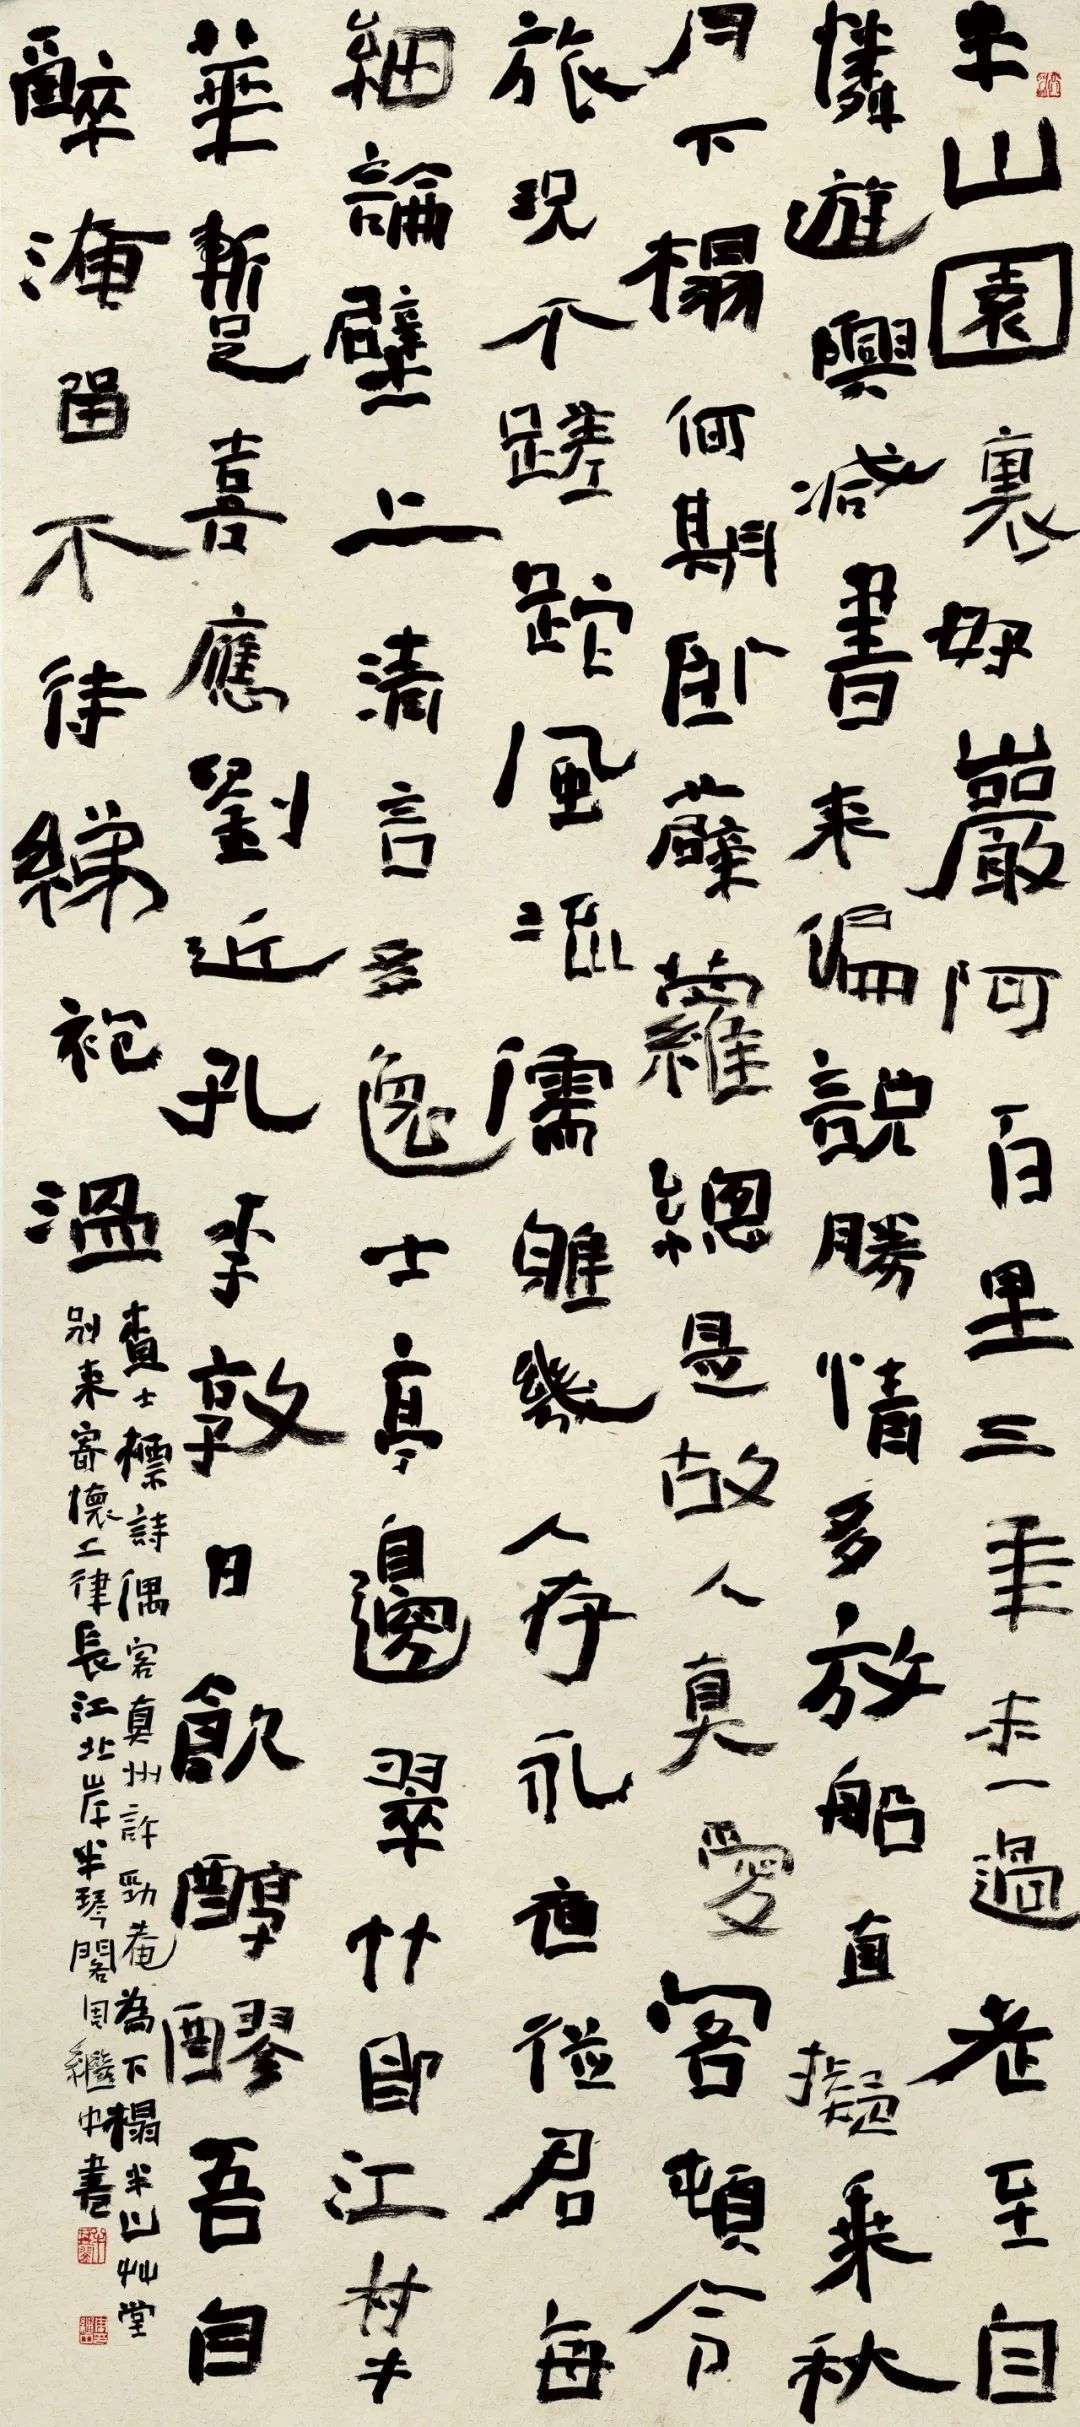 半山園裏好巖阿百里三年未一過老至自
憐遊興減書來偏説勝情多放船直擬乘秋
月下榻何期卧薜蘿總是故人真愛客頓令
旅況不蹉跎風流儒雅幾人存永夜從君每
細論壁上清言多逸士亭邊翠竹即江村才
華暫喜應劉近孔李敦日飲醇醪吾自
醉淹留不待綈袍溫
查士標詩偶客真州許勁菴為下榻半山艸堂
別來寄懷二律長江北岸半琴閣周繼中書